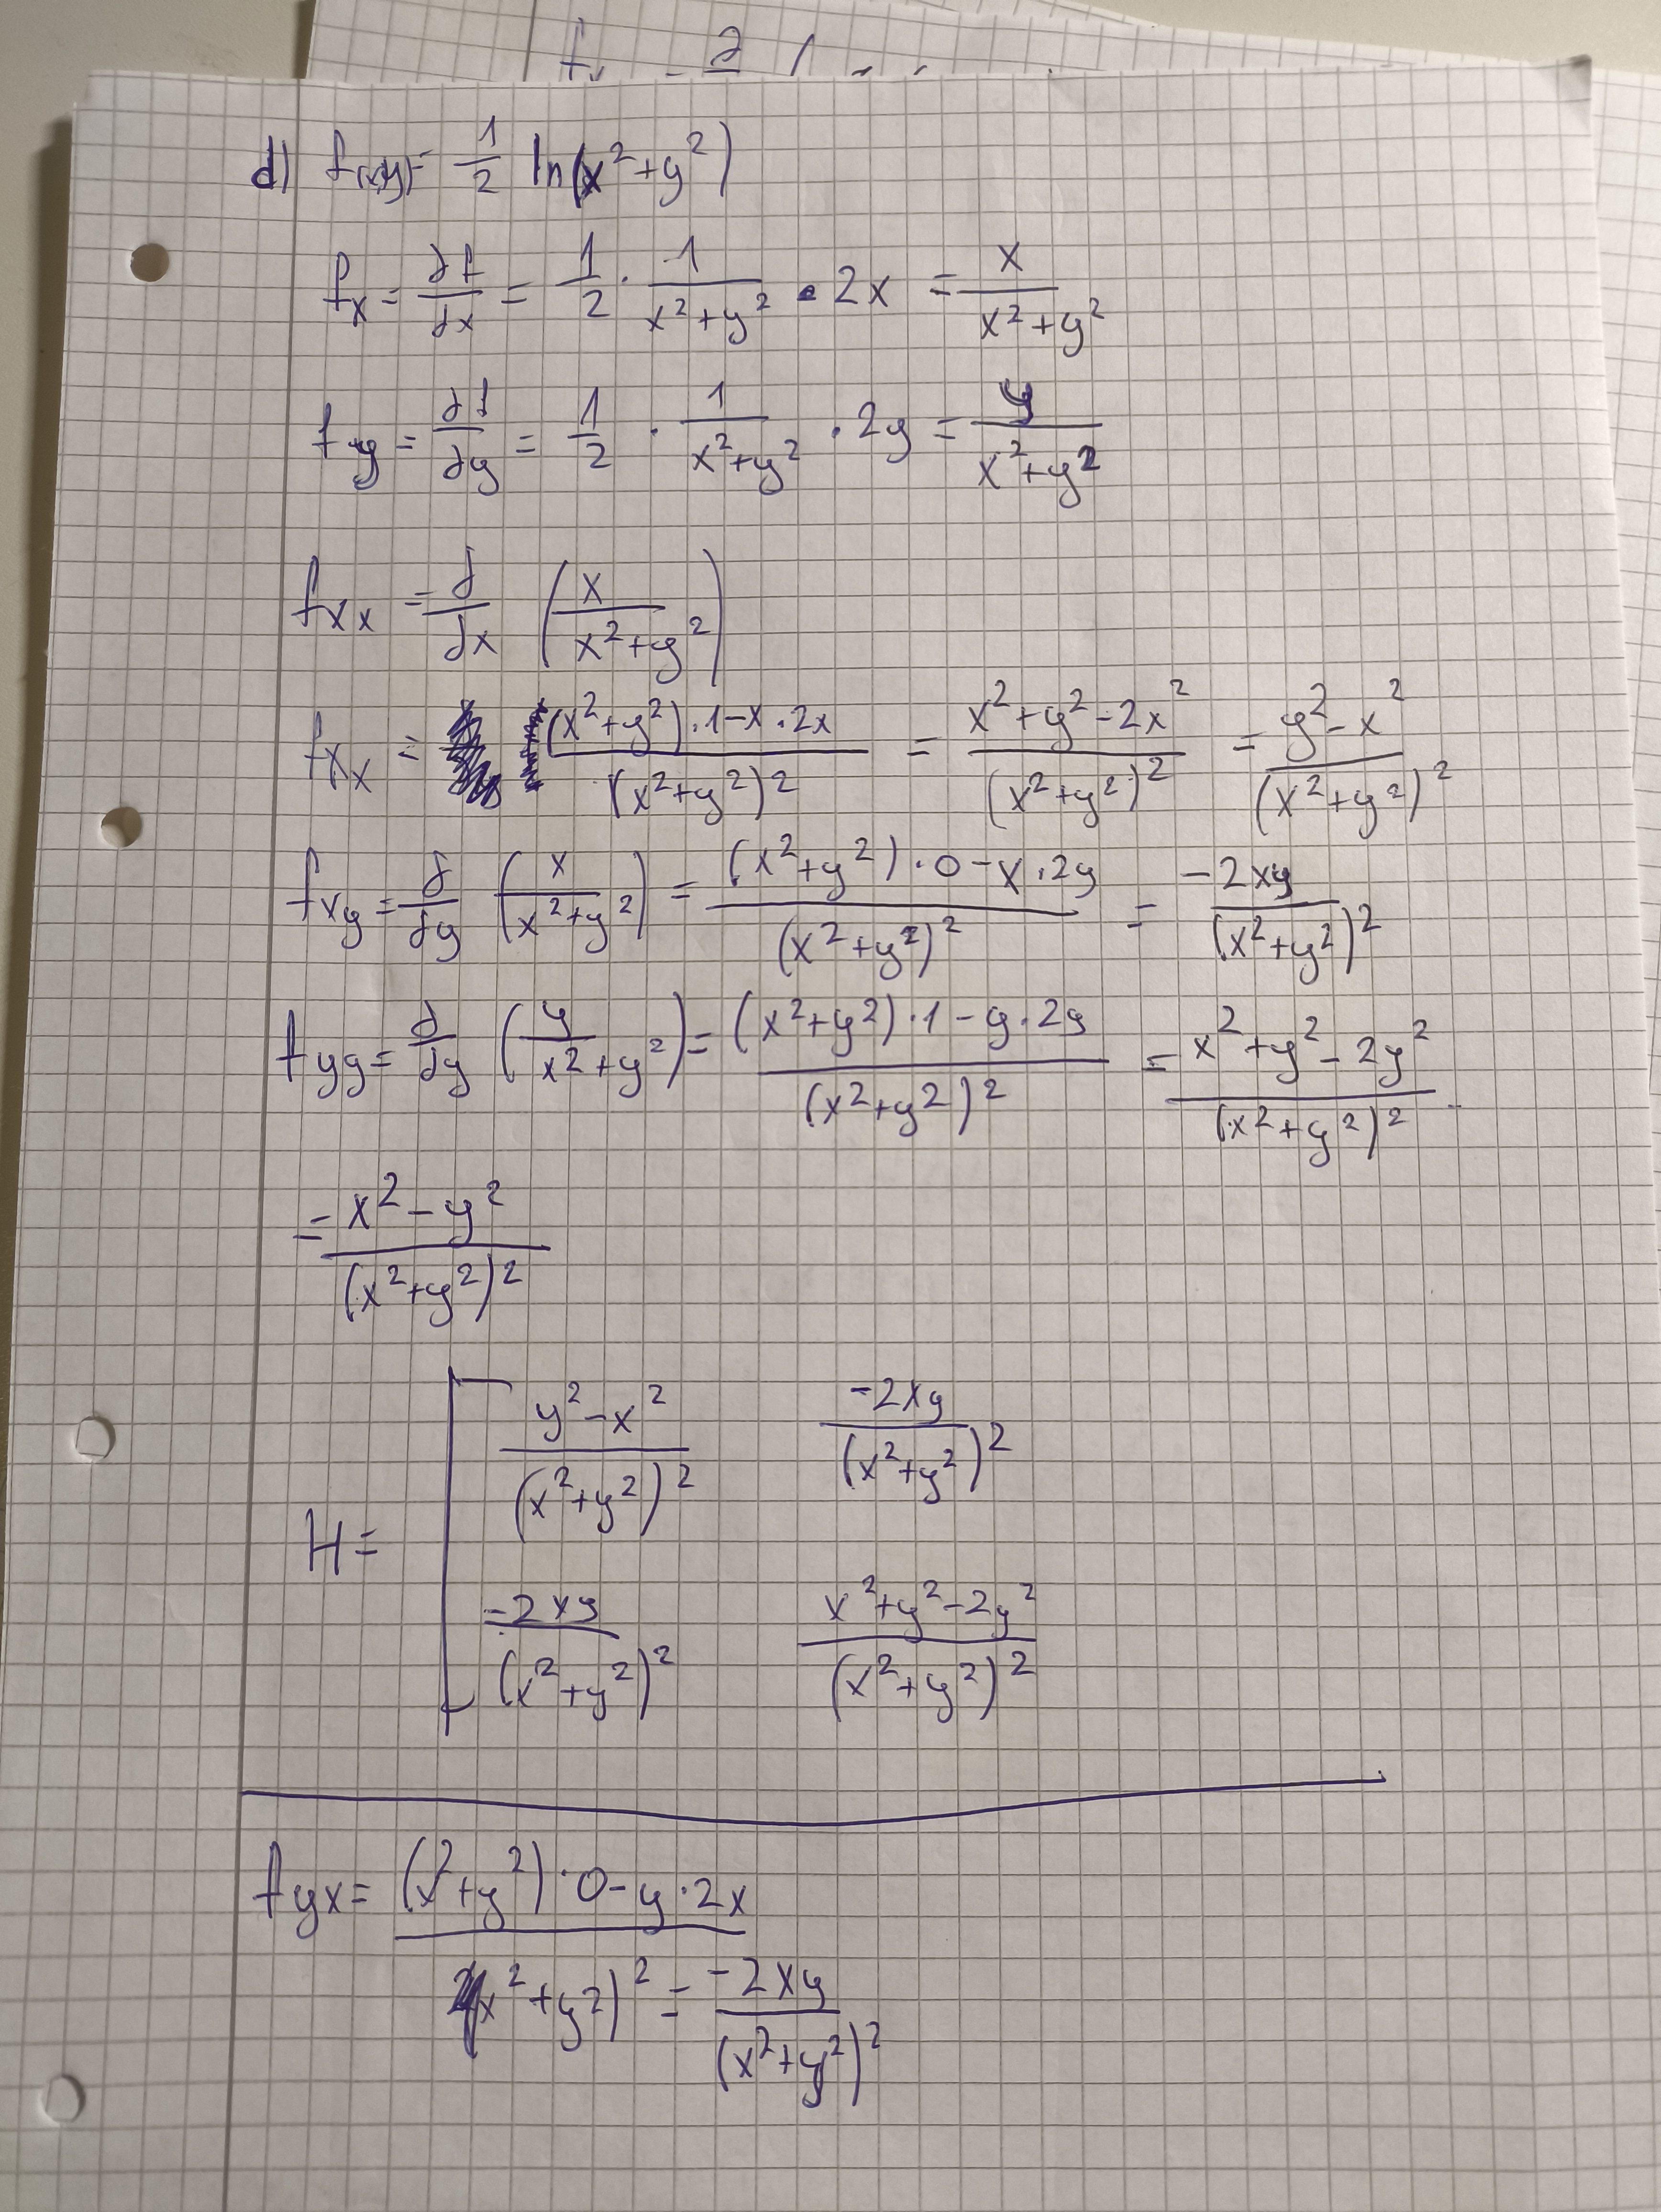 d) f(x,y) = 1/2 ln(x²+y²)
fx = ∂f/∂x = 1/2 · 1/(x²+y²) · 2x = x/(x²+y²)
fy = ∂f/∂y = 1/2 · 1/(x²+y²) · 2y = y/(x²+y²)
fxx = ∂/∂x (x/(x²+y²))
fxx = ((x²+y²)·1-x·2x)/(x²+y²)² = (x²+y²-2x²)/(x²+y²)² = (y²-x²)/(x²+y²)²
fxy = ∂/∂y (x/(x²+y²)) = ((x²+y²)·0-x·2y)/(x²+y²)² = -2xy/(x²+y²)²
fyy = ∂/∂y (y/(x²+y²)) = ((x²+y²)·1-y·2y)/(x²+y²)² = (x²+y²-2y²)/(x²+y²)²
= (x²-y²)/(x²+y²)²
H = [ (y²-x²)/(x²+y²)² -2xy/(x²+y²)²
-2xy/(x²+y²)² (x²+y²-2y²)/(x²+y²)²
fyx = ((x²+y²)·0-y·2x)/(x²+y²)² = -2xy/(x²+y²)²